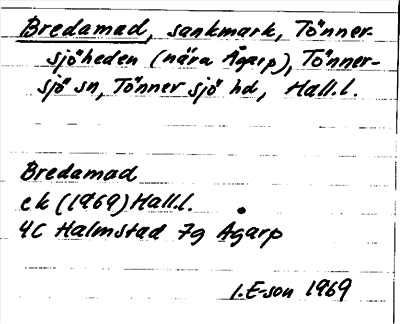 Bredamad, sankmark, Tönner-
sjöheden (nära Ågarp), Tönner-
sjö sn, Tönnersjö hd, Hall.l.
Bredamad
ek (1969) Hall.l.
4C Halmstad 7g Ågarp
I.E-son 1969